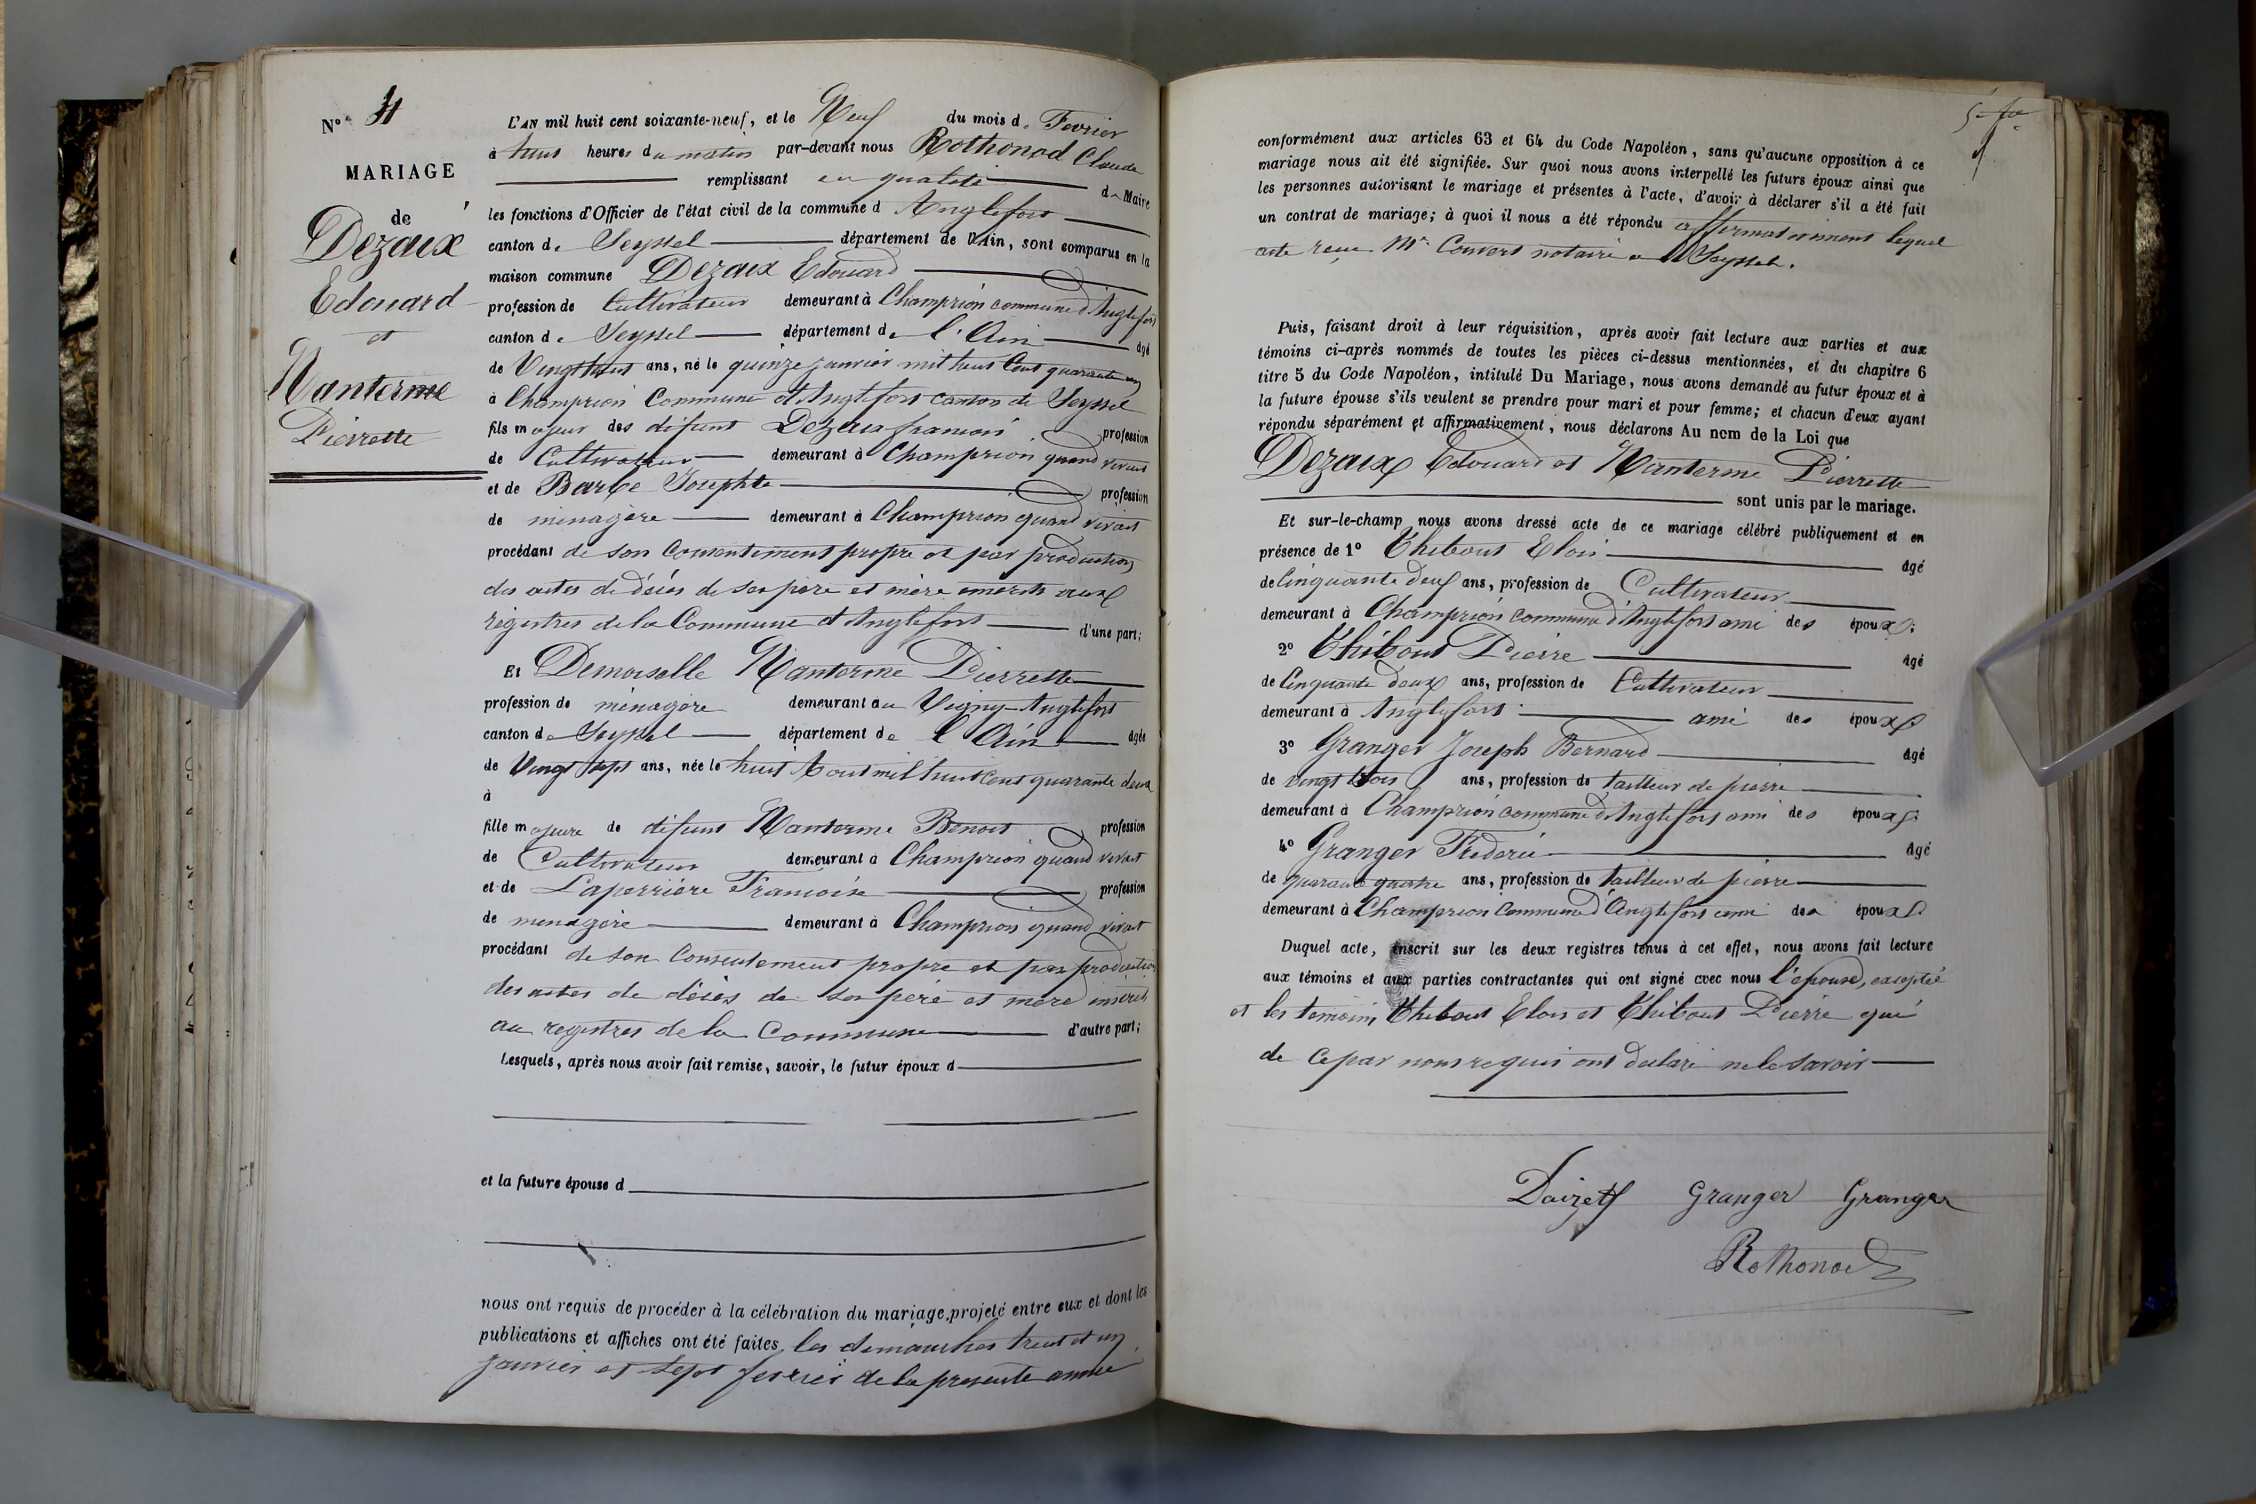 N° 4
MARIAGE
de
Dezaux
Edouard
et
Nanterme
Pierrette
L'AN mil huit cent soixante-neuf, et le Neuf du mois de Fevrier
à huit heures du matin par-devant nous Rothonod Claude
remplissant en qualité de Maire
les fonctions d'Officier de l'état civil de la commune d Anglefort
canton de Seyssel département de l'Ain, sont comparus en la
maison commune Dezaux Edouard
profession de Cultivateur demeurant à Champrion commune d'Anglefort
canton de Seyssel département de l'Ain âgé
de Vingthuit ans, né le quinze janvier mil huit Cent quarante un
à Champrion Commune d'Anglefort canton de Seyssel
fils majeur des défunt Dezaux francois profession
de Cultivateur demeurant à Champrion quand vivait
et de Barbe Josephte profession
de ménagère demeurant à Champrion quand vivait
procédant de son Consentement propre et par production
des actes de décés de ses père et mère inscrits aux
régistres de la Commune d'Anglefort d'une part;
Et Demoiselle Nanterme Pierrette
profession de ménagère demeurant au Vigny Anglefort
canton de Seyssel département de l'Ain âgée
de Vingt sept ans, née le huit Aout mil huit Cent quarante deux
à
fille majeure de défunt Nanterme Benoit profession
de Cultivateur demeurant à Champrion quand vivait
et de Laperrière Francoise profession
de menagère demeurant à Champrion quand vivait
procédant de son Consentement propre et par production
des actes de décès de ses père et mère inscrits
au registres de la Commune d'autre part;
Lesquels, après nous avoir fait remise, savoir, le futur époux d
et la future épouse d
nous ont requis de procéder à la célébration du mariage projeté entre eux et dont les
publications et affiches ont été faites les dimanches trent et un
janvier et sept fevrier de la presente année
conformément aux articles 63 et 64 du Code Napoléon, sans qu'aucune opposition à ce
mariage nous ait été signifiée. Sur quoi nous avons interpellé les futurs époux ainsi que
les personnes autorisant le mariage et présentes à l'acte, d'avoir à déclarer s'il a été fait
un contrat de mariage; à quoi il nous a été répondu affirmativement lequel
acte reçu Mr Convert notaire a Seyssel.
Puis, faisant droit à leur réquisition, après avoir fait lecture aux parties et aux
témoins ci-après nommés de toutes les pièces ci-dessus mentionnées, et du chapitre 6
titre 5 du Code Napoléon, intitulé Du Mariage, nous avons demandé au futur époux et à
la future épouse s'ils veulent se prendre pour mari et pour femme; et chacun d'eux ayant
répondu séparément et affirmativement, nous déclarons Au nom de la Loi que
Dezaux Edouard et Nanterme Pierrette
sont unis par le mariage.
Et sur-le-champ nous avons dressé acte de ce mariage célébré publiquement et en
présence de 1° Thibout Elois âgé
de Cinquante deux ans, profession de Cultivateur
demeurant à Champrion commune d'Anglefort ami des époux;
2° Thibout Pierre âgé
de Cinquante deux ans, profession de Cultivateur
demeurant à Anglefort ami des époux
3° Granger Joseph Bernard âgé
de vingt trois ans, profession de tailleur de pierre
demeurant à Champrion commune d'Anglefort ami des époux;
4° Granger Fréderic âgé
de quarante quatre ans, profession de tailleur de pierre
demeurant à Champrion Commune d'Anglefort ami des époux
Duquel acte, inscrit sur les deux registres tenus à cet effet, nous avons fait lecture
aux témoins et aux parties contractantes qui ont signé avec nous l'épouse, excepté
et les temoins Thibout Elois et Thibout Pierre qui
de ce par nous requis ont déclaré ne le savoir
Daizet Granger Granger
Rothonod